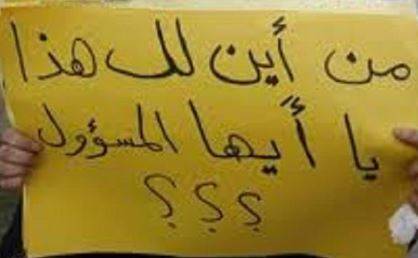 من أين لك هذا
يا أيها المسؤول
؟؟؟